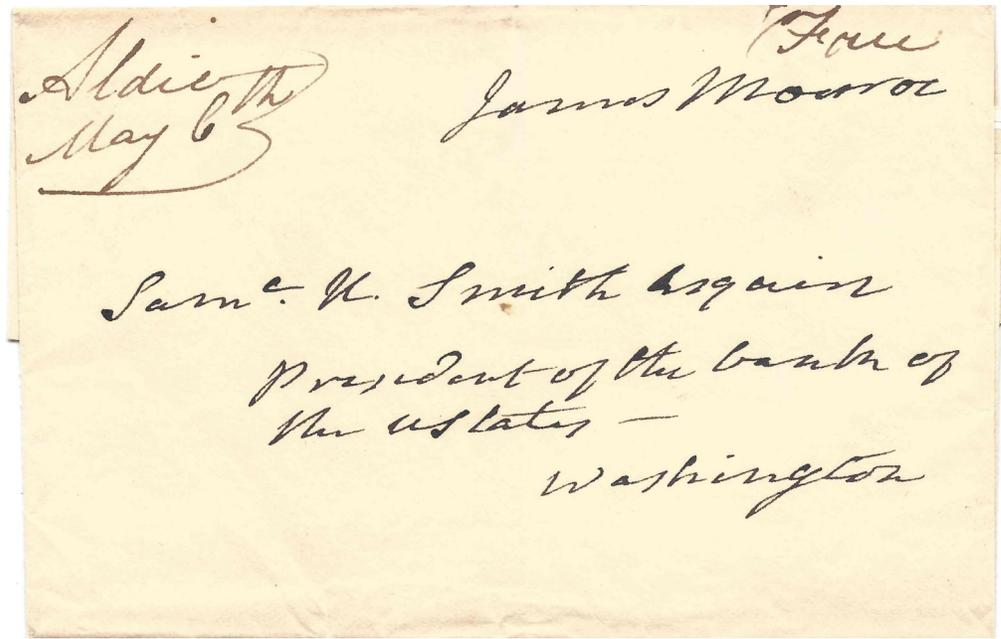 Aldie
May 6th
Free
James Monroe
Saml. H. Smith Esquire
President of the bank of
the UStates —
Washington